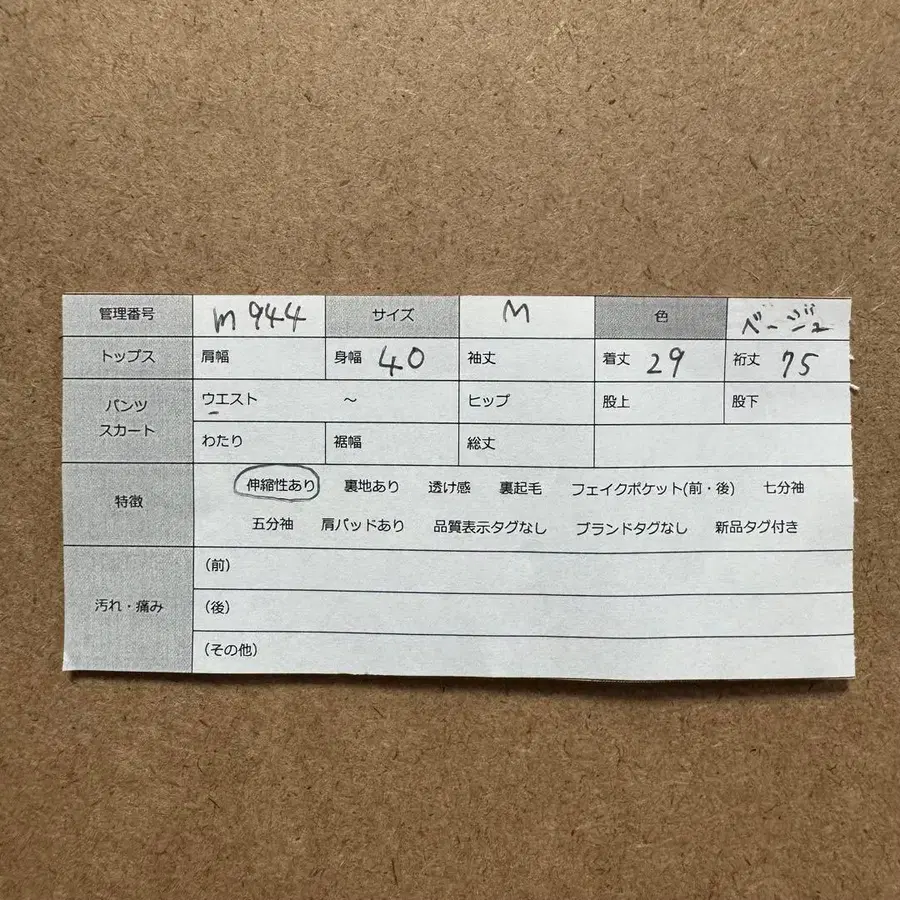 管理番号 m944 サイズ M 色 ベージュ
トップス 肩幅 身幅 40 袖丈 着丈 29 裄丈 75
パンツ スカート ウエスト ～ ヒップ 股上 股下
わたり 裾幅 総丈
特徴 伸縮性あり 裏地あり 透け感 裏起毛 フェイクポケット(前・後) 七分袖
五分袖 肩パッドあり 品質表示タグなし ブランドタグなし 新品タグ付き
汚れ・痛み (前)
(後)
(その他)